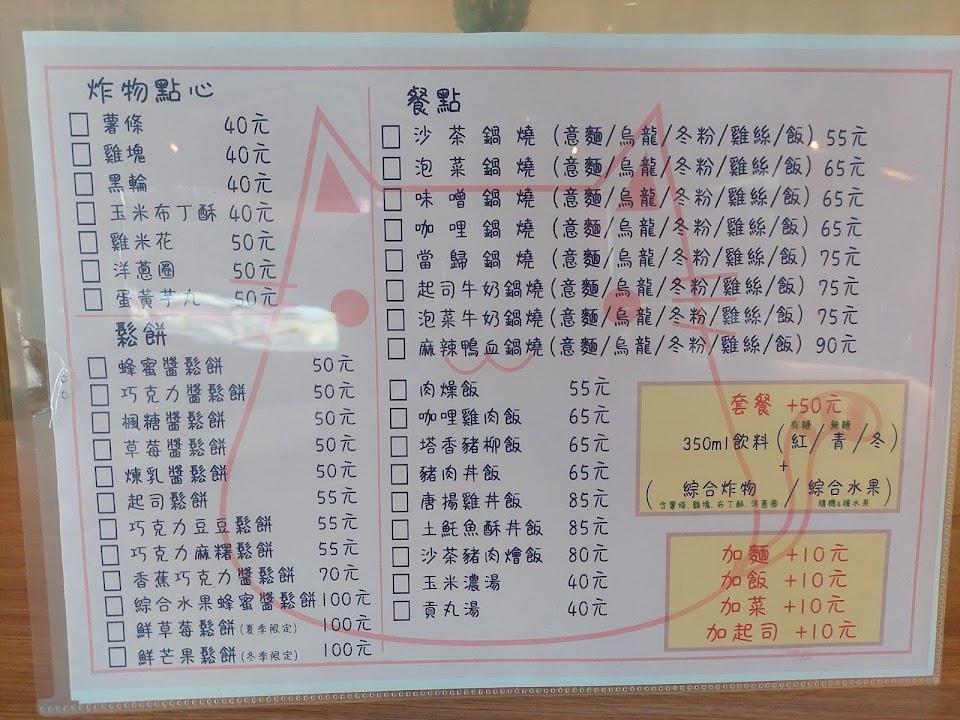 炸物點心
薯條 40元
雞塊 40元
黑輪 40元
玉米布丁酥 40元
雞米花 50元
洋蔥圈 50元
蛋黃芋丸 50元
鬆餅
蜂蜜醬鬆餅 50元
巧克力醬鬆餅 50元
楓糖醬鬆餅 50元
草莓醬鬆餅 50元
煉乳醬鬆餅 50元
起司鬆餅 55元
巧克力豆豆鬆餅 55元
巧克力麻糬鬆餅 55元
香蕉巧克力醬鬆餅 70元
綜合水果蜂蜜醬鬆餅 100元
鮮草莓鬆餅(夏季限定) 100元
鮮芒果鬆餅(冬季限定) 100元
餐點
沙茶鍋燒(意麵/烏龍/冬粉/雞絲/飯) 55元
泡菜鍋燒(意麵/烏龍/冬粉/雞絲/飯) 65元
味噌鍋燒(意麵/烏龍/冬粉/雞絲/飯) 65元
咖哩鍋燒(意麵/烏龍/冬粉/雞絲/飯) 65元
當歸鍋燒(意麵/烏龍/冬粉/雞絲/飯) 75元
起司牛奶鍋燒(意麵/烏龍/冬粉/雞絲/飯) 75元
泡菜牛奶鍋燒(意麵/烏龍/冬粉/雞絲/飯) 75元
麻辣鴨血鍋燒(意麵/烏龍/冬粉/雞絲/飯) 90元
肉燥飯 55元
咖哩雞肉飯 65元
塔香豬柳飯 65元
豬肉丼飯 65元
唐揚雞丼飯 85元
土魠魚酥丼飯 85元
沙茶豬肉燴飯 80元
玉米濃湯 40元
貢丸湯 40元
套餐 +50元
有糖 無糖
350ml飲料(紅/青/冬)
+
(綜合炸物/綜合水果)
含薯條, 雞塊, 布丁酥, 洋蔥圈 隨機4種水果
加麵 +10元
加飯 +10元
加菜 +10元
加起司 +10元